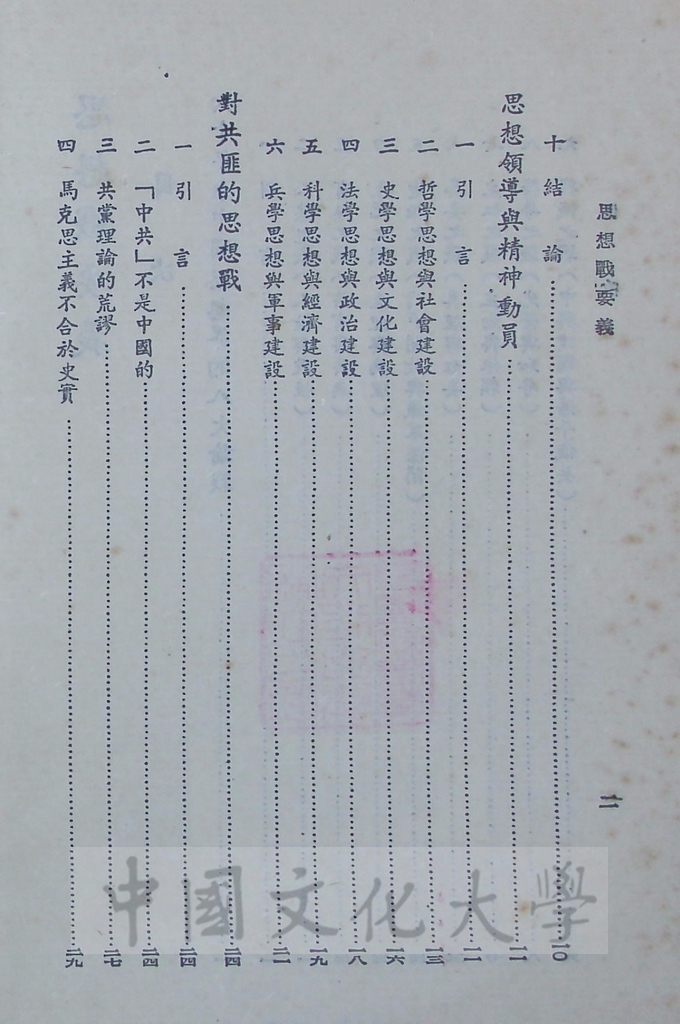 思想戰要義
二
十 結 論……10
思想領導與精神動員……一一
一 引 言……一一
二 哲學思想與社會建設……一三
三 史學思想與文化建設……一六
四 法學思想與政治建設……一八
五 科學思想與經濟建設……一九
六 兵學思想與軍事建設……二一
對共匪的思想戰……二四
一 引 言……二四
二 「中共」不是中國的……二四
三 共黨理論的荒謬……二七
四 馬克思主義不合於史實……二九
中國文化大學